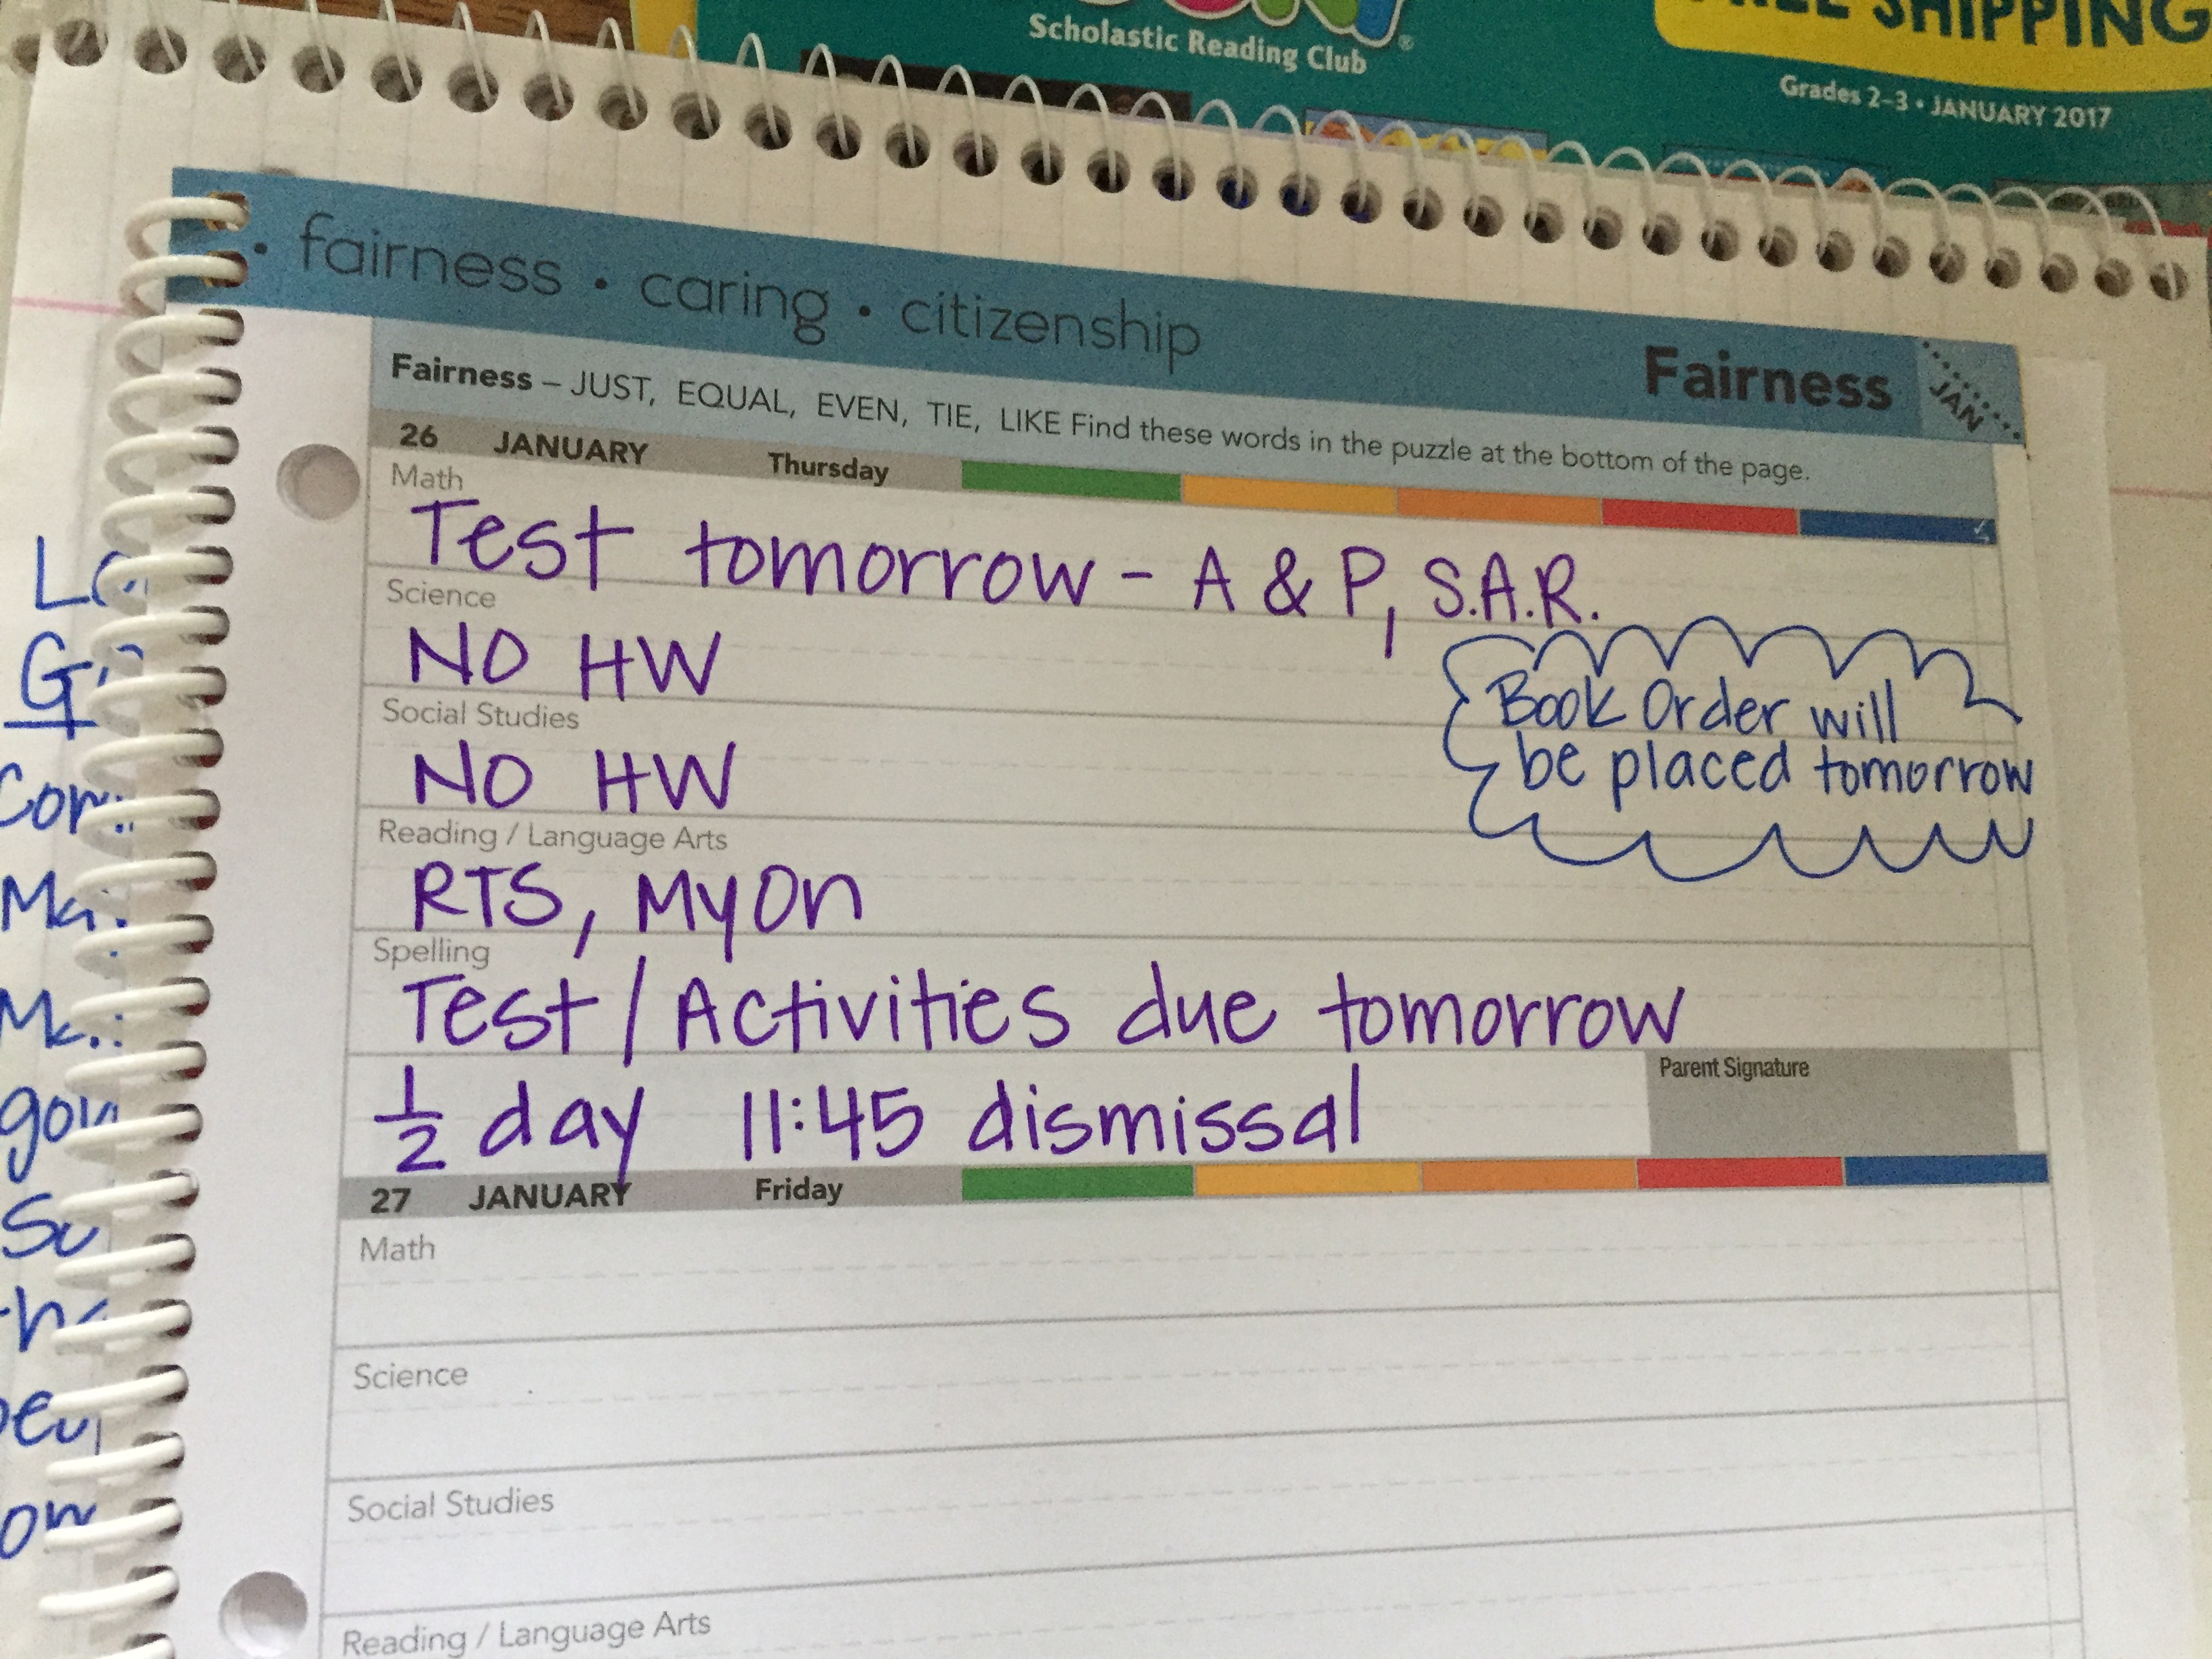 Scholastic Reading Club
SHIPPING
Grades 2-3 • JANUARY 2017
• fairness • caring • citizenship
Fairness
JAN
Fairness – JUST, EQUAL, EVEN, TIE, LIKE Find these words in the puzzle at the bottom of the page.
26 JANUARY Thursday
Math
Test tomorrow - A & P, S.A.R.
Science
NO HW
Book Order will
be placed tomorrow
Social Studies
NO HW
Reading / Language Arts
RTS, MyOn
Spelling
Test / Activities due tomorrow
Parent Signature
1/2 day 11:45 dismissal
27 JANUARY Friday
Math
Science
Social Studies
Reading / Language Arts